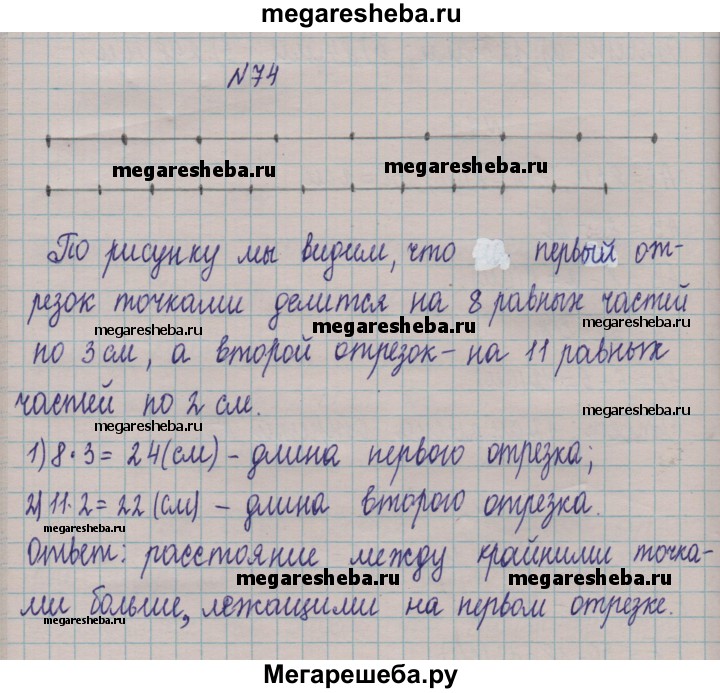 megaresheba.ru
№74
megaresheba.ru megaresheba.ru
По рисунку мы видим, что первый от-
резок точками делится на 8 равных частей
megaresheba.ru megaresheba.ru megaresheba.ru
по 3 см, а второй отрезок - на 11 равных
частей по 2 см.
megaresheba.ru megaresheba.ru
1) 8·3 = 24 (см) - длина первого отрезка;
2) 11·2 = 22 (см) - длина второго отрезка.
megaresheba.ru
Ответ: расстояние между крайними точка-
megaresheba.ru megaresheba.ru
ми больше, лежащими на первом отрезке.
megaresheba.ru
Мегарешеба.ру